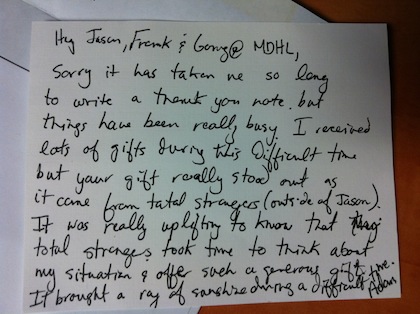 Hey Jason, Frank & Gang @ MDHL,
Sorry it has taken me so long
to write a thank you note, but
things have been really busy. I received
lots of gifts during this difficult time
but your gift really stood out as
it came from total strangers (outside of Jason).
It was really uplifting to know that
total strangers took time to think about
my situation & offer such a generous gift.
It brought a ray of sunshine during a difficult time.
Adam